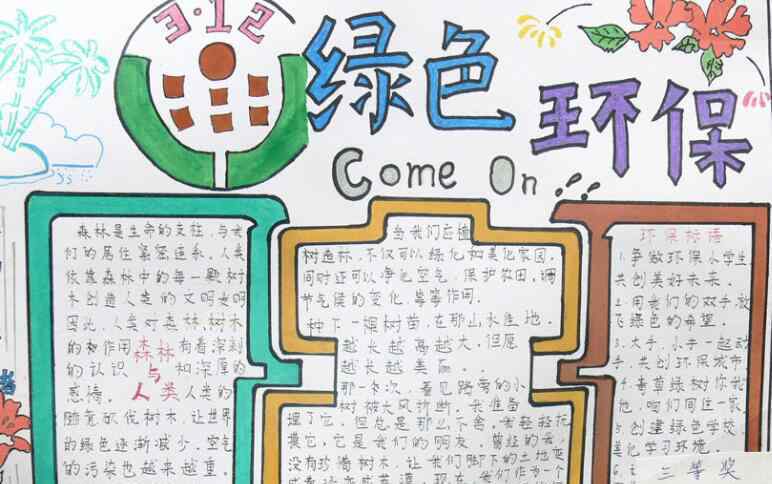 3·12
绿色
环保
Come On
森林是生命的支柱,与我
们的居住紧密连系,人类
依靠森林中的每一颗树
木创造人类的文明发明
因此,人类对森林,树木
的和作用 有着深刻
的认识 和深厚的
感情。 人类的
随意砍伐树木,让世界
的绿色逐渐减少,空气
的污染也越来越重。
森林
与
人类
当我们在植
树造林,不仅可以绿化和美化家园,
同时还可以净化空气,保护农田,调
节气候的变化,等等作用。
种下一棵树苗,在那山水佳地。
越长越高越大,但愿
越长越美丽。
那一次,看见路旁的小
树被大风折断,我准备
埋了它,但总是那么不舍,我轻轻抚
摸它,它是我们的朋友,曾经的我,
没有珍惜树木,让我们脚下的土地变
环保标语
1.争做环保小学生,
共创美好未来。
2.用我们的双手放
飞绿色的希望。
3.大手,小手一起动
手,共创环保城市
4.尊尊绿树你我
他,咱们同住一家
5.创建绿色学校,
美化学习环境。
6.
三等奖